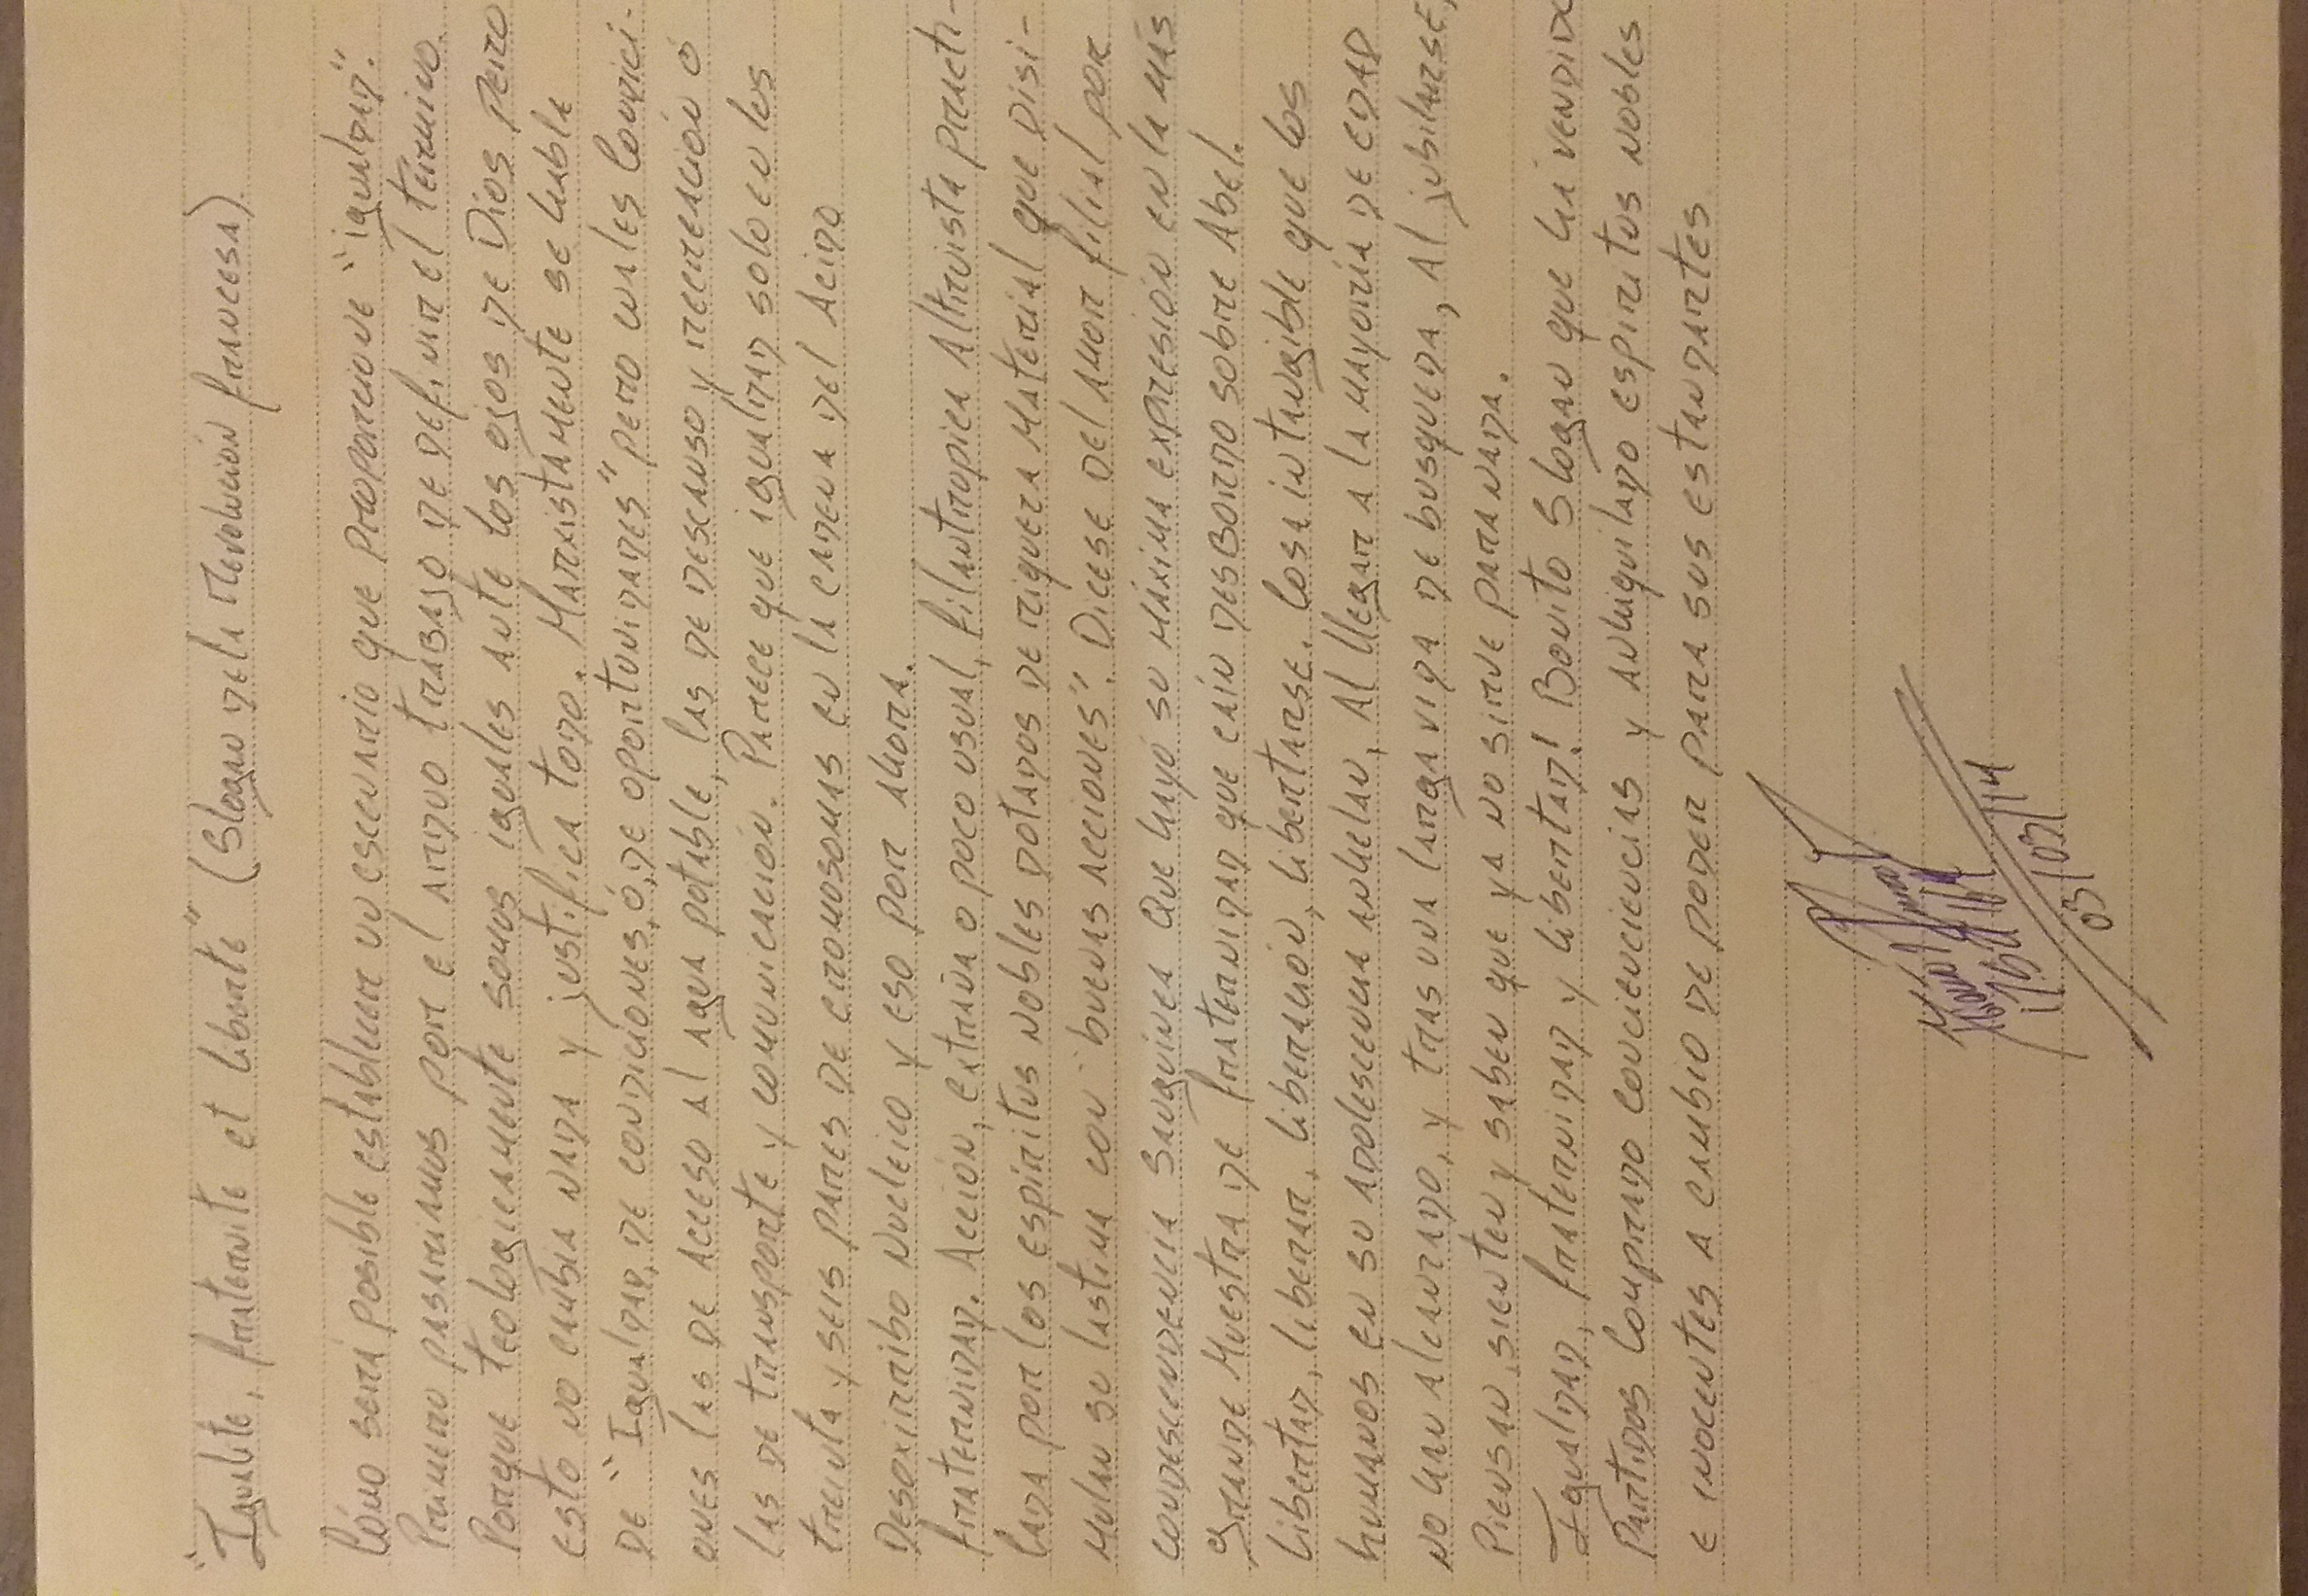 "Igualite, fraternite et liberte" (Slogan de la revolución francesa)
Cómo será posible establecer un escenario que proporcione "igualdad".
Primero pasariamos por el arduo trabajo de definir el término.
Porque teologicamente somos iguales ante los ojos de Dios pero
esto no cambia nada y justifica todo. Marxistamente se habla
de "Igualdad, de condiciones, ó, de oportunidades" pero cuales condici-
ones las de acceso al agua potable, las de descanso y recreación ó
las de transporte y comunicación. Parece que igualdad solo en los
treinta y seis pares de cromosomas en la cadena del Acido
Desoxirribo Nucleico y eso por ahora.
Fraternidad. Acción, extraña o poco usual, filantropica altruista practi-
cada por los espiritus nobles dotados de riqueza material que disi-
mulan su lastima con "buenas acciones". Dicese del amor filial por
condescendencia sanguinea que hayó su máxima expresión en la más
grande muestra de fraternidad que caín desbordo sobre Abel.
Libertad, liberar, liberación, libertarse. Cosa intangible que los
humanos en su adolescencia anhelan, al llegar a la mayoría de edad
no han alcanzado, y tras una larga vida de busqueda, al jubilarse,
Piensan, sienten y saben que ya no sirve para nada.
Igualdad, fraternidad y libertad! Bonito slogan que ha vendido
Partidos comprado conciencias y aniquilado espiritus nobles
e inocentes a cambio de poder para sus estandartes
03/03/14